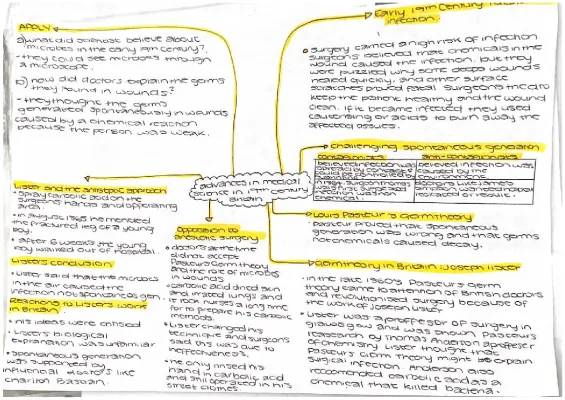 APPLY
a) what did scientist believe about
microbes in the early 19th century?
- they could see microbes through
a microscope.
b) how did doctors explain the germs
they found in wounds?
- they thought the germs
generated spontaneously in wounds
caused by a chemical reaction
because the person was weak.
Early 19th Century
infection.
surgery carried a high risk of infection
surgeons believed that chemicals in the
wound caused the infection, but they
were puzzled why some deep wounds
healed quickly, and other surface
scratches proved fatal. Surgeons tried to
keep the patient healthy and the wound
clean. if it became infected they used
cauterising or acids to burn away the
affected tissues.
advances in medical
science in 19th century
Britain
challenging spontaneous generation
contagionists
anti-contagionists
believed infection was
believed infection was
caused by the
environment.
chemical.
doctors like James
Louis Pasteur's Germ theory
Pasteur proved that spontaneous
generation was wrong and that germs
not chemicals caused decay.
Germ theory in Britain: Joseph Lister
in the late 1860s Pasteurs germ
theory came to attention of British doctors
and revolutionised surgery because of
the work of Joseph Lister
Lister was a professor of surgery in
glasgow and was shown Pasteurs
research by Thomas Anderson a professor
of chemistry. Lister thought that
Pasteurs Germ theory might explain
surgical infection. Anderson also
recomended carbolic acid as a
chemical that killed bacteria.
Lister and the antiseptic approach
spray carbolic acid on the
surgeons hands and operating
area.
in august 1865 he mended
the fractured leg of a young
boy.
after 6 weeks the young
boy walked out of hospital.
Listers conclusion
Lister said that the microbes
in the air caused the
infection not spontaneous gen.
Reactions to Listers work
in Britain
his ideas were critised
Listers biological
explanation was unfamiliar
spontaneous generation
was supported by
influential doctors like
charlton Bastian.
Opposition to
antiseptic surgery
doctors at the time
did not accept
Pasteurs Germ theory
and the role of microbes
in wounds
carbolic acid dried skin
and irrated lungs and
it took nurses a long time
for to prepare his carbolic
methods.
Lister changed his
technique and surgeons
said this was due to
ineffectiveness.
he only rinsed his
hand in carbolic acid
and still operated in his
street clothes.